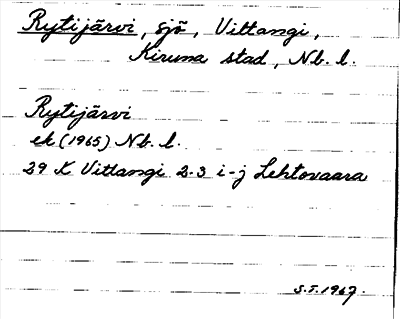 Rytijärvi, sjö, Vittangi,
Kiruna stad, Nb. l.
Rytijärvi
ek (1965) Nb. l.
29 K Vittangi 2-3 i-j Lehtovaara
S.S. 1967.